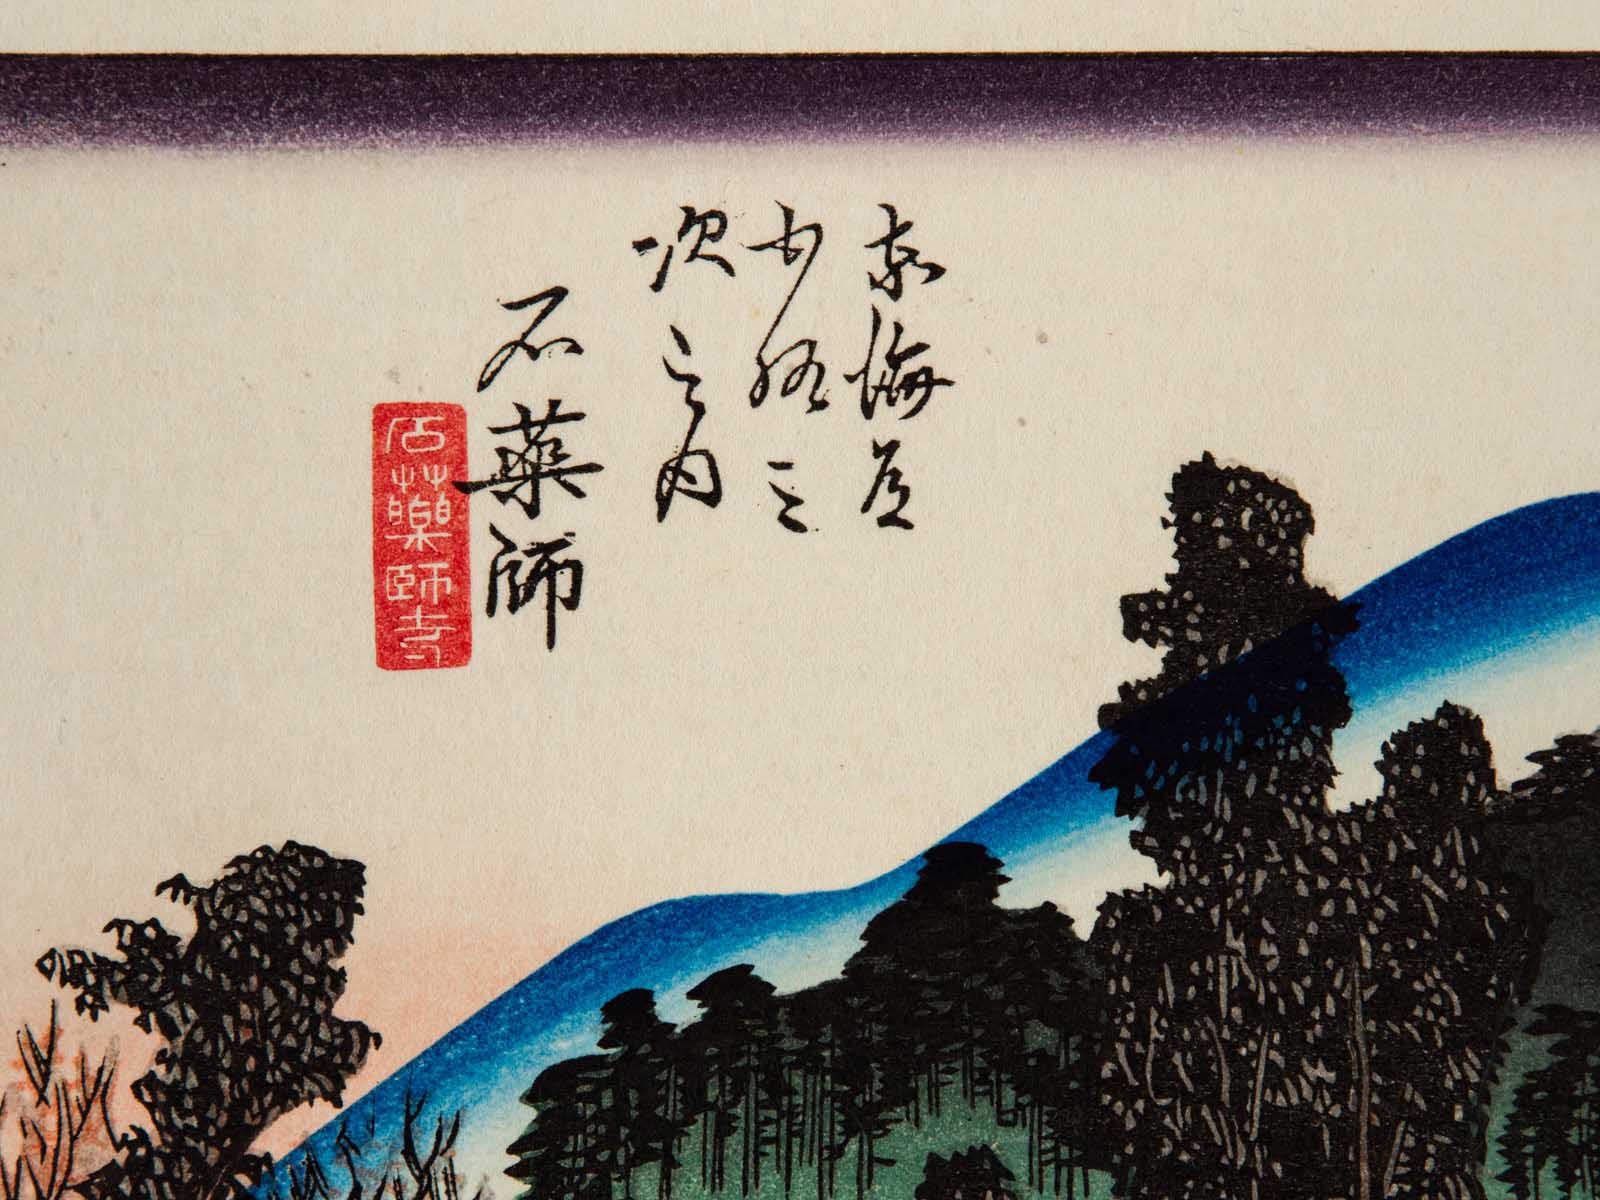 東海道
五拾三
次之内
石薬師
石薬師寺